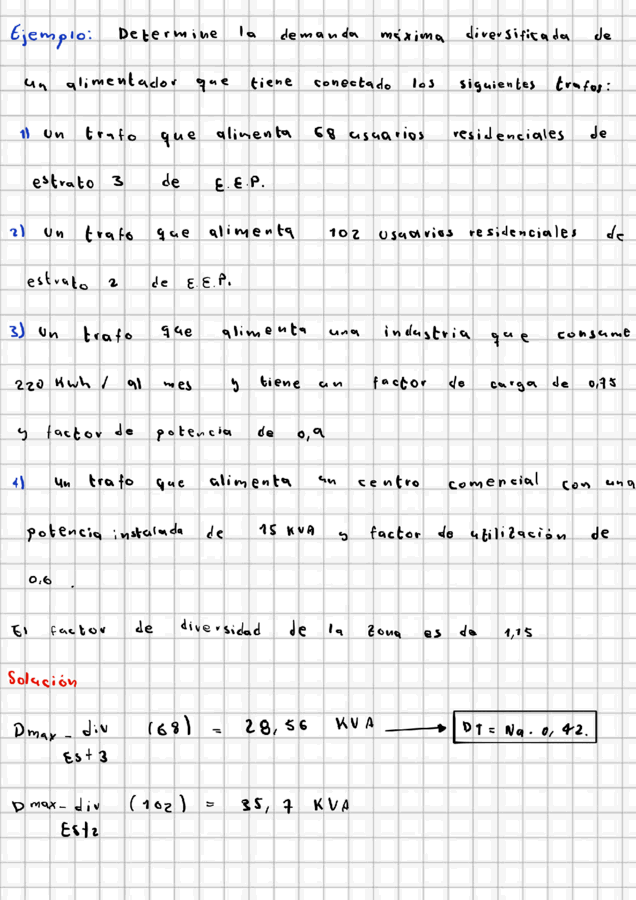 Ejemplo: Determine la demanda máxima diversificada de
un alimentador que tiene conectado los siguientes trafos:
1) un trafo que alimenta 68 usuarios residenciales de
estrato 3 de E.E.P.
2) un trafo que alimenta 102 usuarios residenciales de
estrato 2 de E.E.P.
3) un trafo que alimenta una industria que consume
220 Kwh / al mes y tiene un factor de carga de 0,75
y factor de potencia de 0,9
4) un trafo que alimenta un centro comercial con una
potencia instalada de 15 KVA y factor de utilización de
0,6 .
El factor de diversidad de la zona es de 1,15
Solución
Dmax_div (68) = 28,56 KVA → DT = Na . 0,42.
Est 3
Dmax-div (102) = 35,7 KVA
Est2